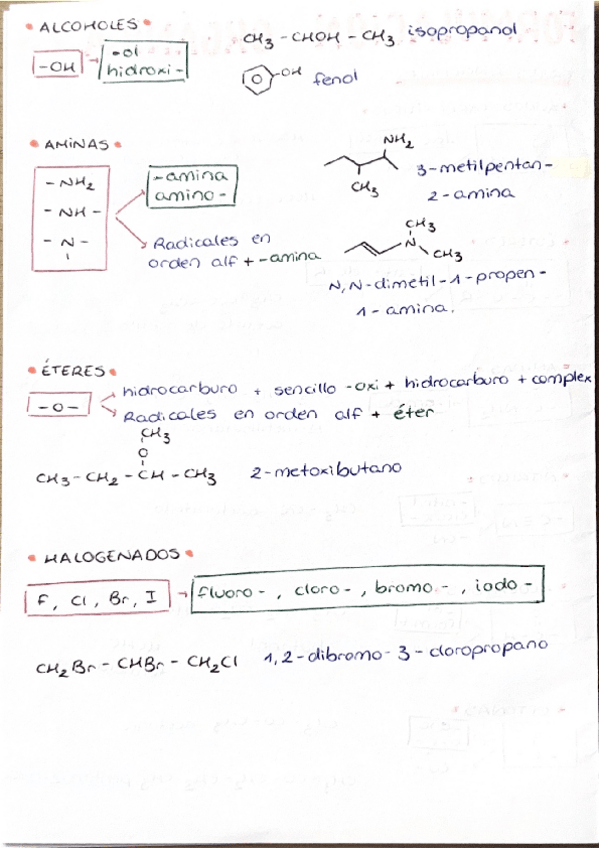 • ALCOHOLES •
-OH
-ol
hidroxi-
CH3 - CHOH - CH3 isopropanol
-OH fenol
• AMINAS •
- NH2
- NH -
- N -
-amina
amino-
Radicales en
orden alf + -amina
NH2
CH3
3-metilpentan-
2-amina
CH3
N
CH3
N,N-dimetil-1-propen-
1-amina.
• ÉTERES •
-O-
hidrocarburo + sencillo -oxi + hidrocarburo + complex
Radicales en orden alf + éter
CH3
O
CH3 - CH2 - CH - CH3 2-metoxibutano
• HALOGENADOS •
F, Cl, Br, I
fluoro-, cloro-, bromo-, iodo-
CH2Br - CHBr - CH2Cl 1,2-dibromo-3-cloropropano